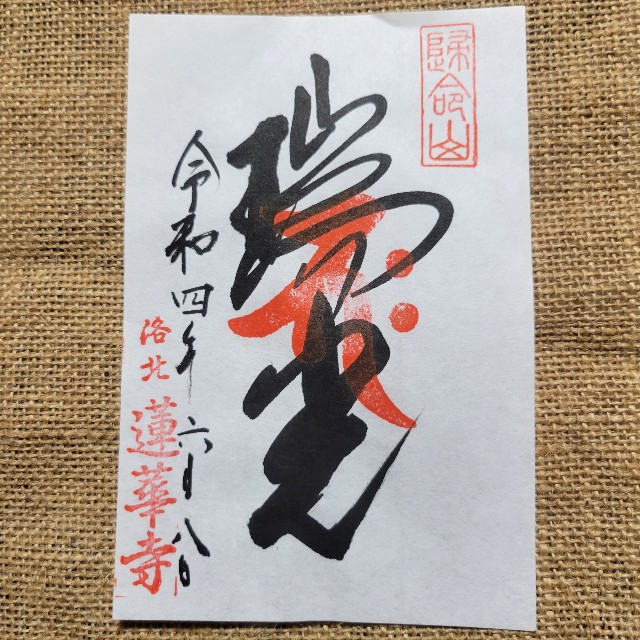 歸命山
瑞光
令和四年六月八日
洛北
蓮華寺